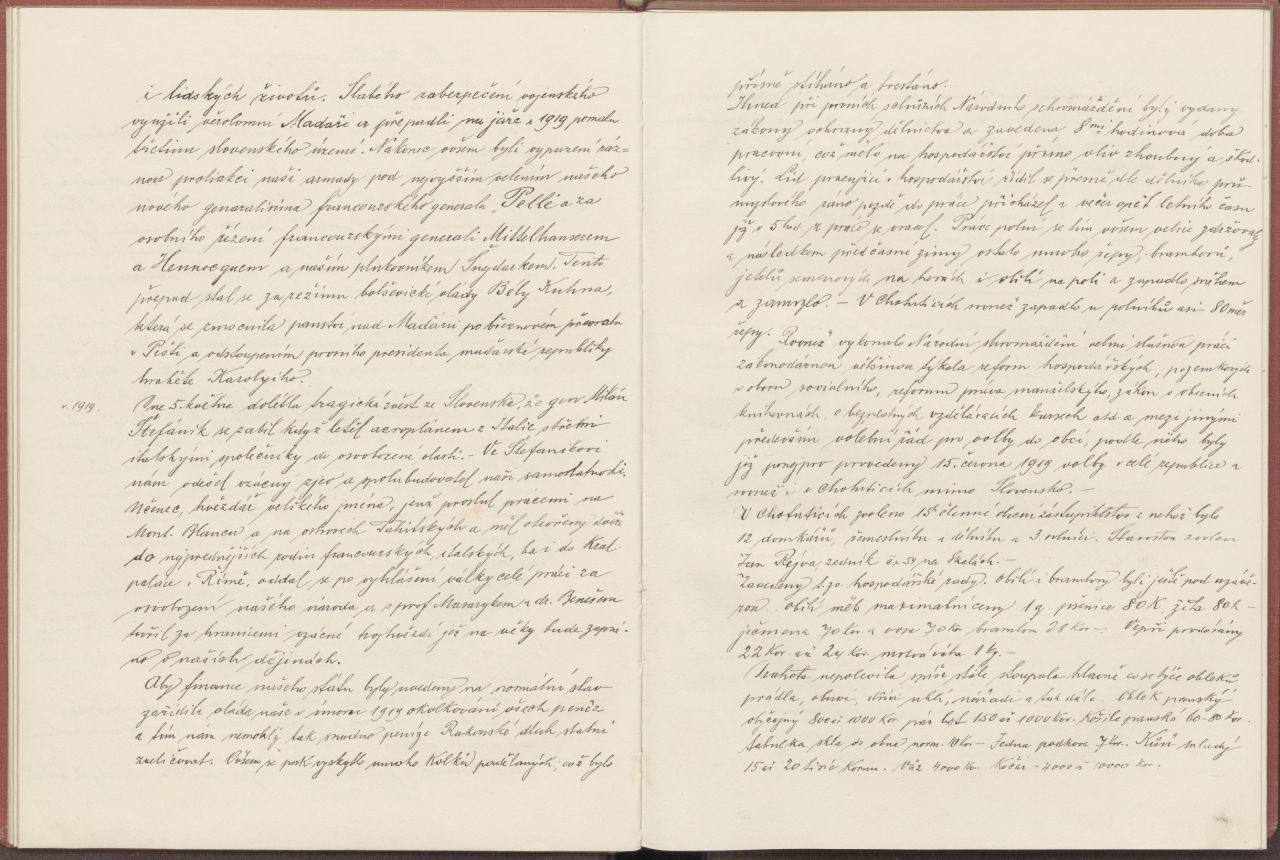 i lidských životů. Slabého zabezpečení vojenského
využili věrolomní Maďaři a přepadli na jaře r. 1919 pomalu
třetinu slovenského území. Nakonec ovšem byli vypuzeni ráz=
nou protiakcí naší armády pod nejvyšším velením našeho
nového generalissima francouzského generála Pellé a za
osobního řízení francouzskými generáli Mittelhauserem
a Hennocquem a naším plukovníkem Šnejdárkem. Tento
přepad stal se za režimu bolševické vlády Bély Kuhna,
která se zmocnila panství nad Maďárii po březnovém převratu
v Pešti a odstoupením prvního presidenta maďarské republiky
hraběte Karolyiho.
r. 1919. Dne 5. května dolétla tragická zvěst ze Slovenska, že gen. Milán
Štefánik se zabil když letěl aeroplánem z Italie s třemi
italskými společníky do osvobozené vlasti. - Ve Štefánikovi
nám odešel vzácný zjev a spolubudovatel naší samostatnosti.
Učenec, hvězdář velikého jména, jenž proslul pracemi na
Mont. Blancu a na ostrovech Tahitských a měl otevřeny dvéře
do nejpřednějších rodin francouzských, italských, ba i do Král.
paláce v Římě, oddal se po vyhlášení války celé práci za
osvobození našého národa a s prof. Masarykem a dr. Benešem
tvořil za hranicemi vzácné trojhvězdí jež na věky bude zapsá-
no v našich dějinách.
Aby finance našeho státu byly uvedeny na normální stav
zařídila vláda naše v únoru 1919 okolkování všech peněz
a tím nám nemohly tak snadno peníze Rakouské dluh státní
zveličovat. Ovšem se pak vyskytlo mnoho kolků padělaných, což bylo
přísně stíháno a trestáno.
Ihned při prvních schůzích Národního schromáždění byly vydány
zákony ochrany dělnictva a zavedena 8mi hodinová doba
pracovní, což mělo na hospodářství přímo vliv zhoubný a škod-
livý. Lid pracující v hospodářství řídil se přesně dle dělníka prů-
myslového ráno pozdě do práce přicházel a večer opět letního času
již v 5 hod z práce se vracel. Práce polní se tím ovšem velice zdržovaly
a následkem předčasné zimy ostalo mnoho řepy, bramborů,
jetelů semenových na horách i obilí na poli a zapadlo sněhem
a zamrzlo. - V Chotuticích rovněž zapadlo u rolníků asi 80 měr
řepy. Rovněž vykonalo Národní shromáždění velmi slušnou práci
zákonodárnou většinou týkala reform hospodářských, pozemkových
v oboru socialního, reformu práva manželského, zákon o obecních
knihovnách, o bezplatných vzdělávacích kursech atd a mezi jinými
především volební řád pro volby do obcí, podle něho byly
již ponejprv provedeny 15. června 1919 volby v celé republice a
rovněž i v Chotuticích mimo Slovensko. -
V Chotuticích zvoleno 15ti členné obecní zastupitelstvo z něhož bylo
12 domkářů, řemeslníků a dělníků a 3 rolníci. Starostou zvolen
Jan Rejva zedník čp. 54 na Skalách. -
Zavedeny t. zv. hospodářské rady. Obilí i brambory byli ještě pod uzávě-
rou. Obilí mělo maximalní ceny 1 q. pšenice 80 K. žita 80 K -
ječmena 70 Kor. a ovse 70 Kor brambor 28 Kor -. Vepři prodávány
22 Kor. až 24 Kor. mrtvá váha 1 kg. -
Drahota nepolevila spíše stále stoupala hlavně co se týče obleků
prádla, obuvi, dříví uhlí, nářadí a tak dále. Oblek panský
obyčejný 800 až 1000 Kor. pár bot 150 až 1000 Kor. Košile panská 60-80 Kor.
tabulka skla do okna norm. 10 Kor - Jedna podkova 7 Kor. Kůň mladý
15 až 20 tisíc Korun. Vůz 4000 Kor. Kočár - 4000 až 10000 Kor.